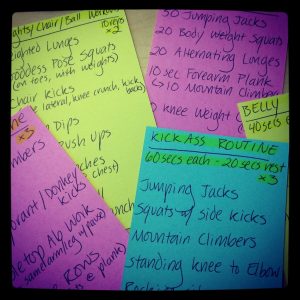 ghts/Chair/Ball Workout
10 reps
x2
ighted Lunges
oddess Pose Squats
(on toes, with weights)
Chair Kicks
lateral, knee crunch, kick
back)
Dips
ush Ups
nches
chest)
unch
50 Jumping Jacks
20 Body Weight Squats
20 Alternating Lunges
10 sec Forearm Plank
↳10 Mountain Climbers
0 knee Weight
BELLY
40 secs
x3
mbers
Durant/Donkey
Kicks
bletop Ab Work
same arm/leg w/
Rows
@ plank)
KICK ASS ROUTINE
60 secs each - 20 secs rest
x3
Jumping Jacks
squats w/ side kicks
Mountain Climbers
standing knee to Elbow